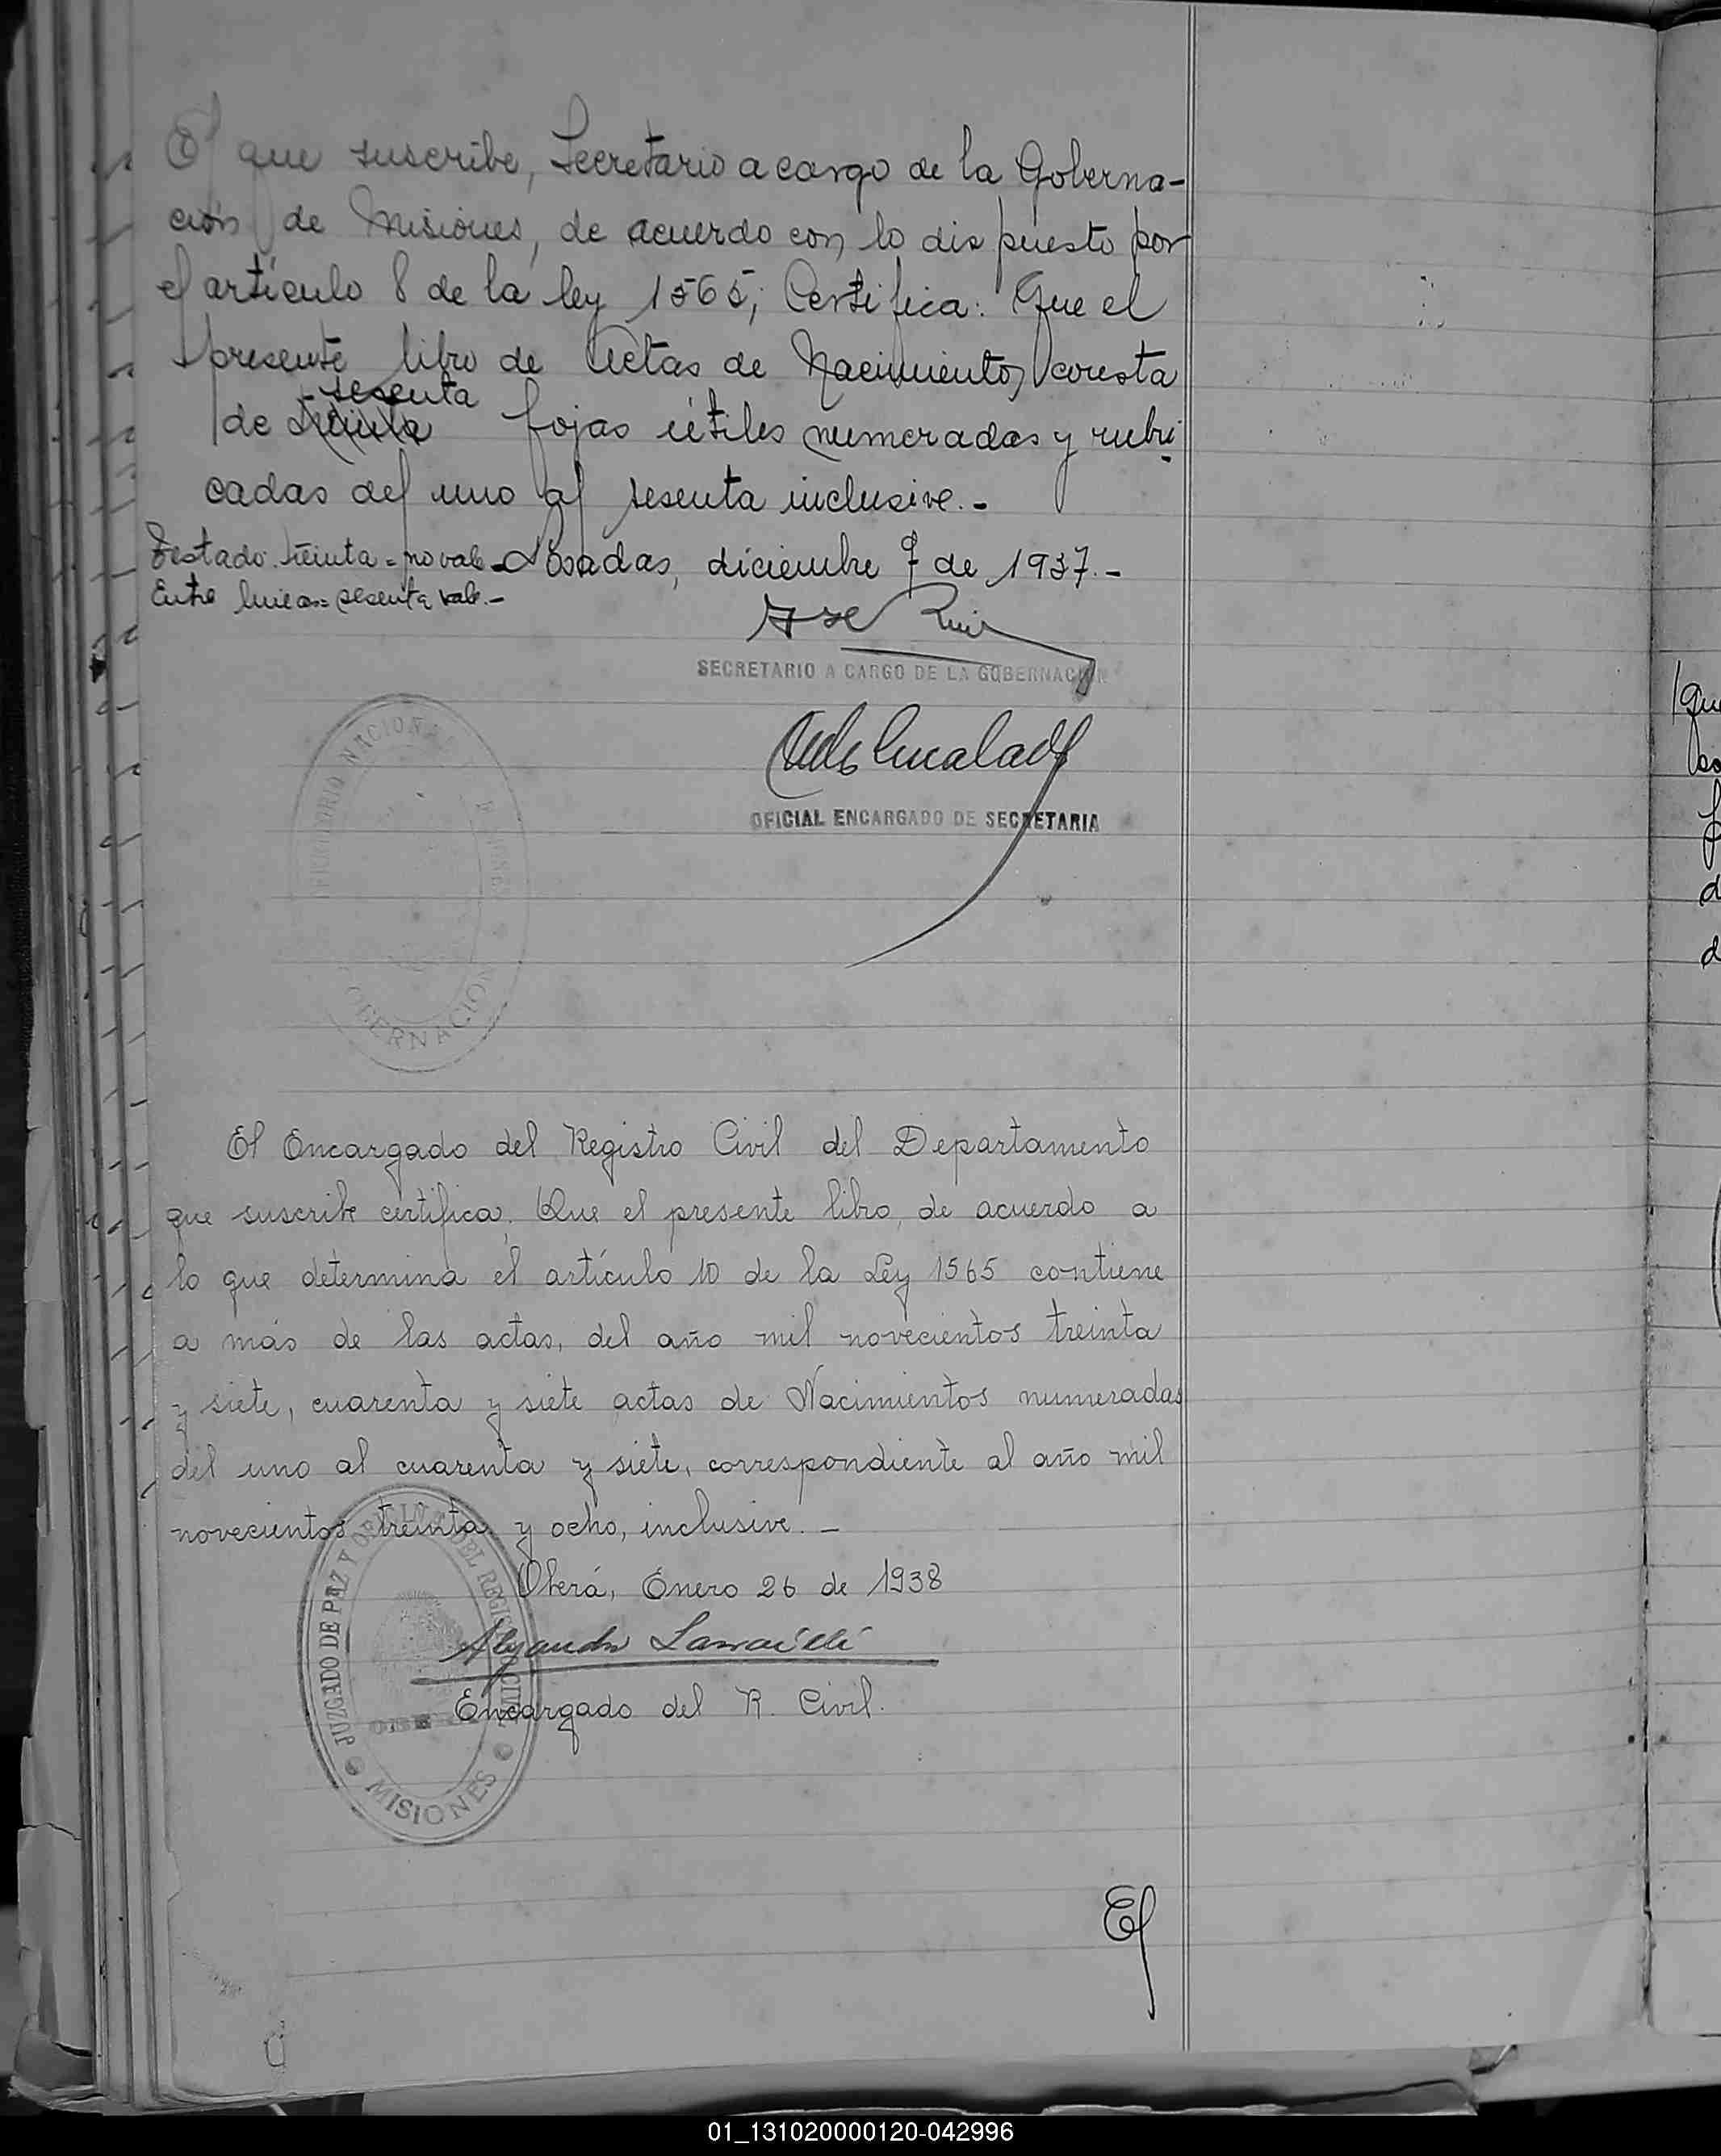 El que suscribe, Secretario a cargo de la Goberna-
ción de Misiones, de acuerdo con lo dispuesto por
el artículo 8 de la ley 1565, Certifica: Que el
presente libro de Actas de Nacimientos consta
sesenta
de treinta fojas útiles numeradas y rubri
cadas del uno al sesenta inclusive.-
Testado: treinta = no vale - Posadas, diciembre 7 de 1937.-
Entre lineas = sesenta vale.-
Ruiz
SECRETARIO A CARGO DE LA GOBERNACION
OFICIAL ENCARGADO DE SECRETARIA
TERRITORIO NACIONAL
GOBERNACION
El Encargado del Registro Civil del Departamento
que suscribe certifica: Que el presente libro, de acuerdo a
lo que determina el artículo 10 de la Ley 1565 contiene
a más de las actas, del año mil novecientos treinta
y siete, cuarenta y siete actas de Nacimientos numeradas
del uno al cuarenta y siete, correspondiente al año mil
novecientos treinta y ocho, inclusive. -
Oberá, Enero 26 de 1938
Alejandro
Encargado del R. Civil.
JUZGADO DE PAZ Y OFICINA DEL REGISTRO CIVIL
MISIONES
El
01_131020000120-042996